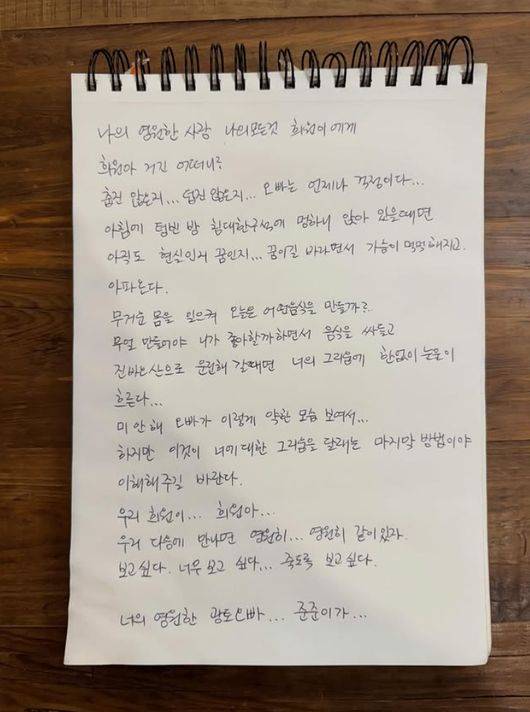 나의 영원한 사랑 나의모든것 희원이에게
희원아 거긴 어떠니?
춥진 않은지... 덥진 않은지... 오빠는 언제나 걱정이다...
아침에 텅빈 방 침대한구석에 멍하니 앉아 있을때면
아직도 현실인지 꿈인지... 꿈이길 바라면서 가슴이 먹먹해지고.
아파온다.
무거운 몸을 일으켜 오늘은 어떤음식을 만들까?
무얼 만들어야 니가 좋아할까하면서 음식을 싸들고
진바오산으로 운전해 갈때면 너의 그리움에 한없이 눈물이
흐른다...
미안해 오빠가 이렇게 약한 모습 보여서...
하지만 이것이 너에대한 그리움을 달래는 마지막 방법이야
이해해주길 바란다.
우리 희원이... 희원아...
우리 다음에 만나면 영원히... 영원히 같이있자.
보고싶다. 너무 보고 싶다... 죽도록 보고싶다.
너의 영원한 광토오빠... 준준이가...